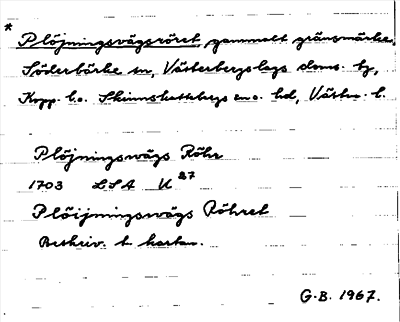 * Plöjningsvägsröret, gammalt gränsmärke,
Söderbärke sn, Västerbergslags doms. tg,
Kopp. l. o. Skinnskattebergs sn o. hd, Västm. l.
Plöjningswägs Röhr
1703 LSA U 27
Plöijningswägs Röhret
Beskriv. t. kartan.
G.B. 1967.